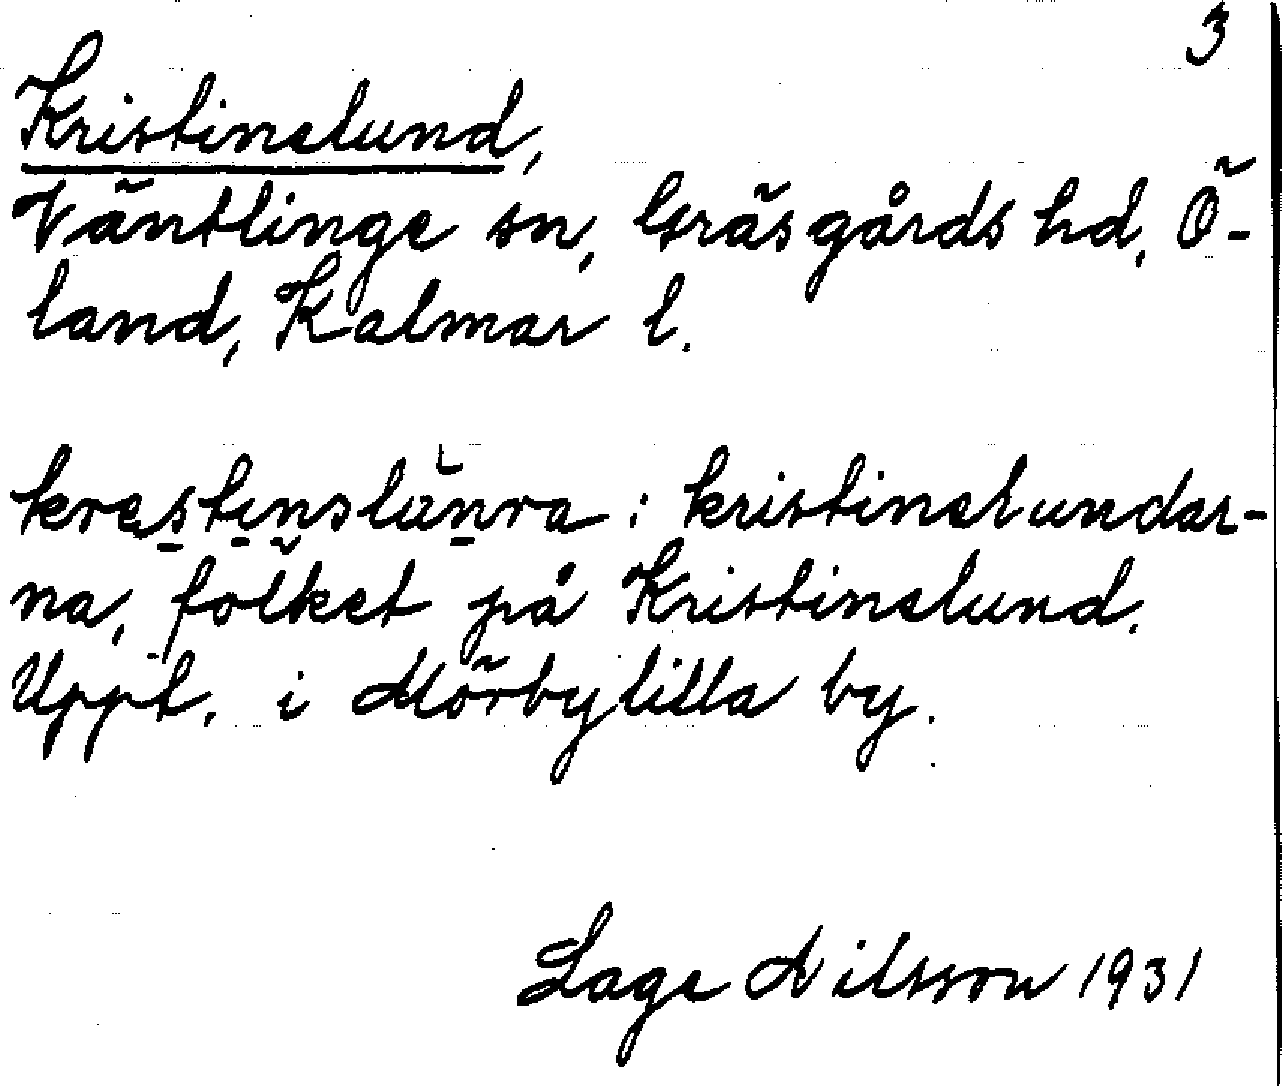 3
Kristinelund,
Väntlinge sn, Gräsgårds hd, Ö-
land, Kalmar l.
: kristinelundar-
na, folket på Kristinelund.
Uppt. i Mörbylilla by.
Lage Nilsson 1931